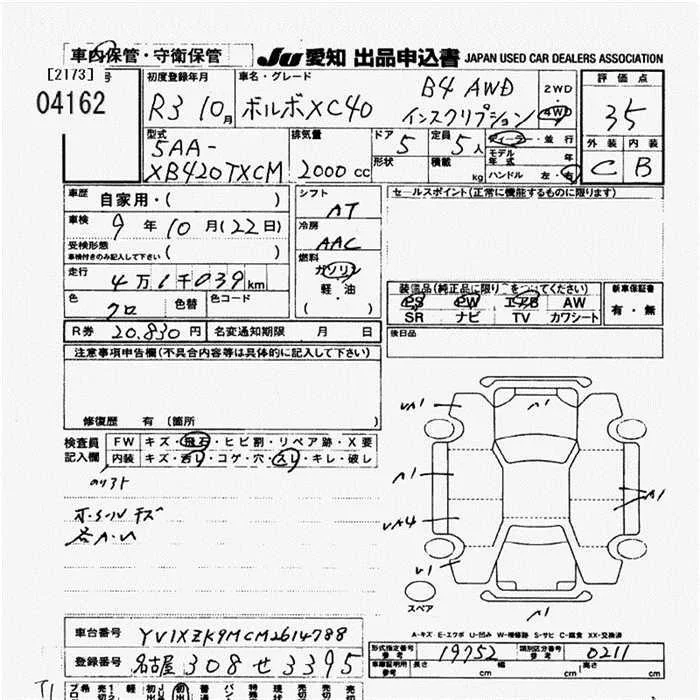 車内保管・守衛保管
JU 愛知 出品申込書 JAPAN USED CAR DEALERS ASSOCIATION
[2173] 号
04162
初度登録年月
R3 10月
車名・グレード
ボルボXC40 B4 AWD
インスクリプション
2WD
4WD
評価点
3.5
外装 内装
C B
型式
5AA-
XB420TXCM
排気量
2000 cc
ドア 5
形状
定員 5人
積載 kg
ディーラー・並行
モデル年式 年
ハンドル 左・右
車歴 自家用・( )
車検 9年10月(22日)
受検形態
車検付きのみ記入して下さい ( )
走行 4万1千039km
色 クロ 色替 色コード
R券 20.830円 名変通知期限 月 日
シフト
AT
冷房
AAC
燃料
ガソリン
軽・油
( )
セールスポイント(正常に機能するものに限ります)
装備品(純正品に限り○をつけてください)
PS PW エアB AW
SR ナビ TV カワシート
新車保証書
有・無
後日品
注意事項申告欄(不具合内容等は具体的に記入して下さい)
修復歴 有(箇所 )
検査員
記入欄
FW キズ・飛石・ヒビ割・リペア跡・X要
内装 キズ・汚レ・コゲ・穴・スレ・キレ・破レ
ノリアト
ホイールキズ
各A・U
UA1
A1
A1
UA4
U1
A1
A1
スペア
A-キズ E-エクボ U-凹み W-補修跡 S-サビ C-腐食 XX-交換済
車台番号 YV1XZK9MCM2614788
登録番号 名古屋 308 せ 3395
形式指定番号
参考
19752
類別区分番号
参考
0211
車庫証明用
参考
長さ cm 幅 cm 高さ cm